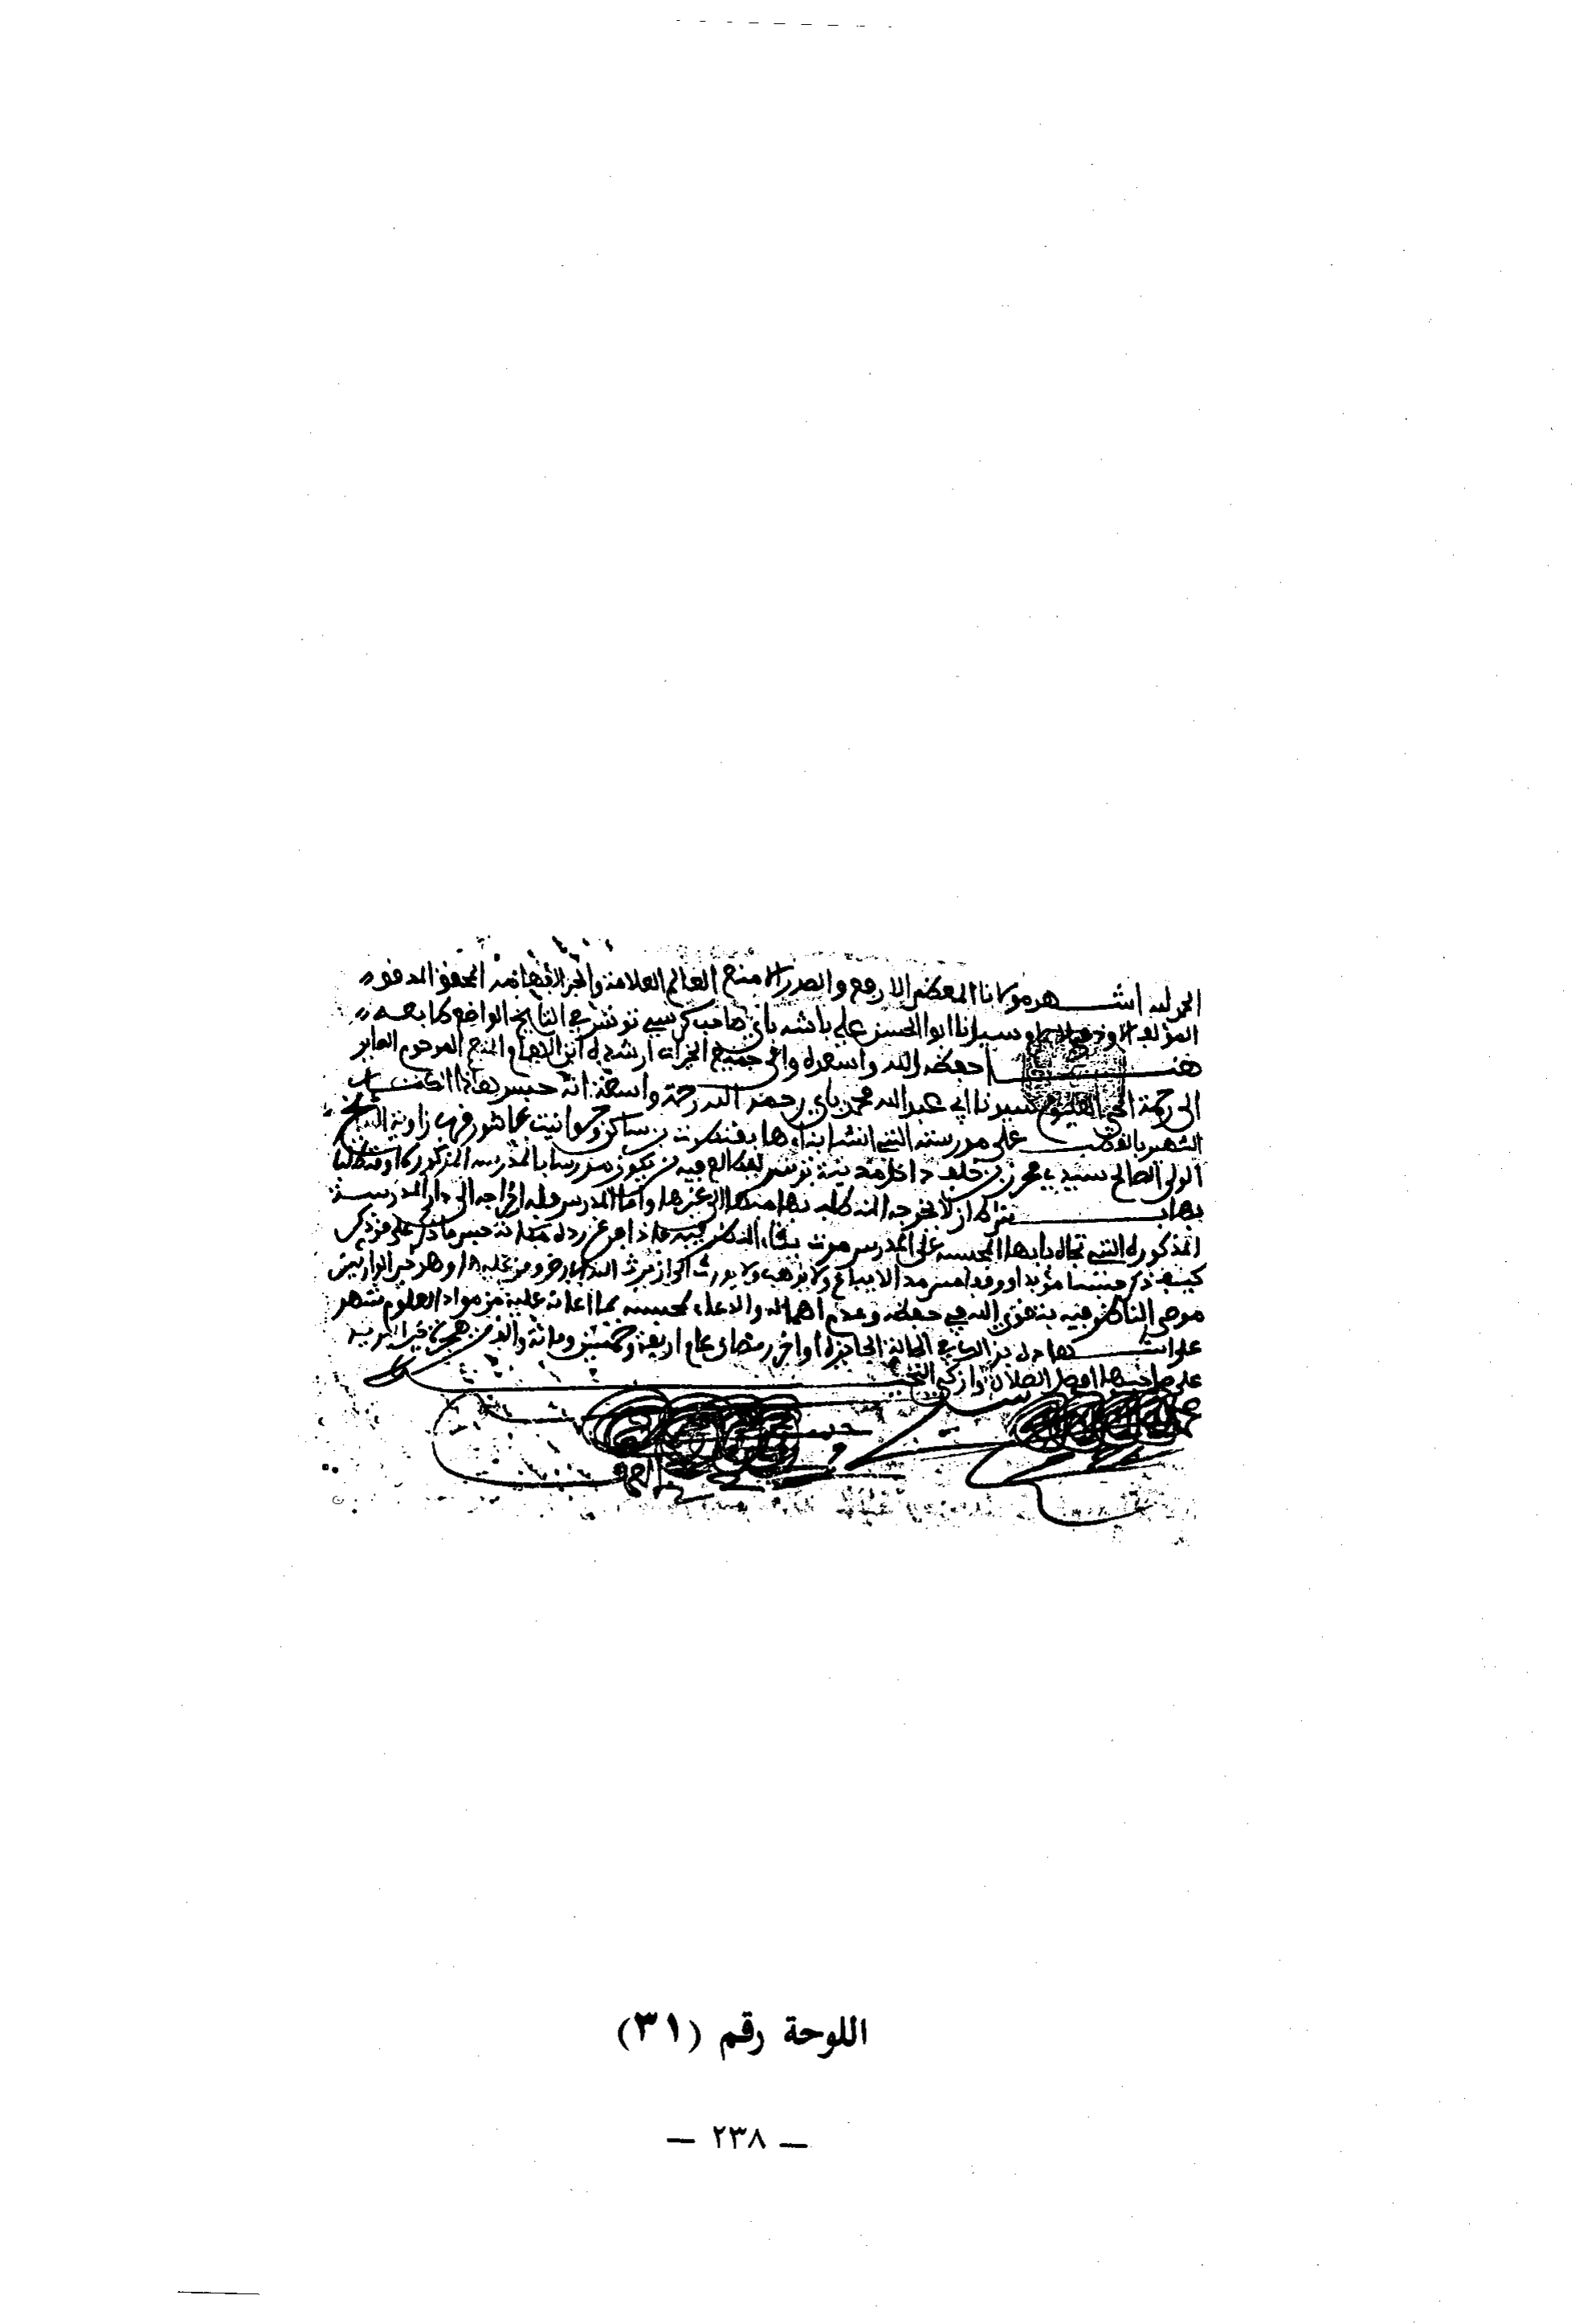 الحمد لله أشهد مولانا المعظم الارفع والصدر الامنع العالم العلامة والحبر الفهامة المحقق المدقق
المؤلف سيدنا ابو الحسن علي باشه باي صاحب كرسي تونس في التاريخ الواضع طابعه
هنا حفظه الله واسعده والى جميع الخيرات ارشده ابن المنعم المرحوم الصاير
الى رحمة الحي القيوم سيدنا ابي عبد الله محمد باي رحمه الله رحمة واسعة انه حبس هاذا الكتاب
الشهير بالقطب على مدرسته التي انشا بناءها بفندق وحوانيت عاشور قرب زاوية الشيخ
الولي الصالح سيدي محرز بن خلف داخل مدينة تونس ليطالع فيه من يكون مدرسا بالمدرسة المذكورة او من طلبتها
بها بشرط ان لا يخرجه الطلبة بها منها الى غيرها واما المدرس فله اخراجه الى دار المدرسة
المذكورة التي تجاه بابها المحبسة على المدرس فاذا فرغ رده حبس ما ذكر على من ذكر
كيف ذكر حبسا مؤبدا ووقفا سرمدا لا يباع ولا يوهب ولا يورث الى ان يرث الله الارض ومن عليها وهو خير الوارثين
موصي الناظر فيه بتقوى الله في حفظه وعدم اهماله والدعاء لمحبسه بما اعانه عليه من مواد العلوم شهد
على اشهاده بذلك في الحالة الجائزة اواخر رمضان عام اربعة وخمسين ومائة والف من هجرة خير البرية
على صاحبها افضل الصلاة وازكى التحية
اللوحة رقم (٣١)
— ٢٣٨ —